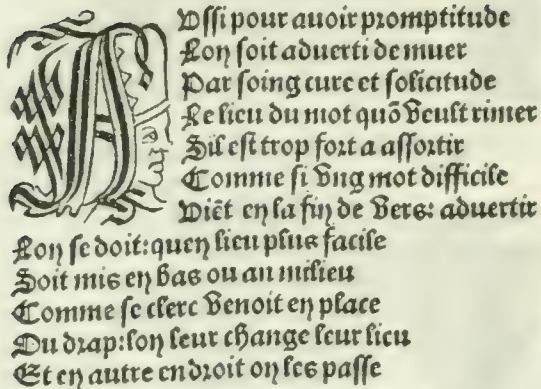 AVssi pour auoir promptitude
Lon soit aduerti de muer
Par soing cure et solicitude
Le lieu du mot quō veult rimer
Sil est trop fort a assortir
Comme si vng mot difficile
Viēt en la fin de vers: aduertir
Lon se doit: quen lieu plus facile
Soit mis en bas ou au milieu
Comme se clerc venoit en place
Du drap: lon leur change leur lieu
Et en autre endroit on les passe